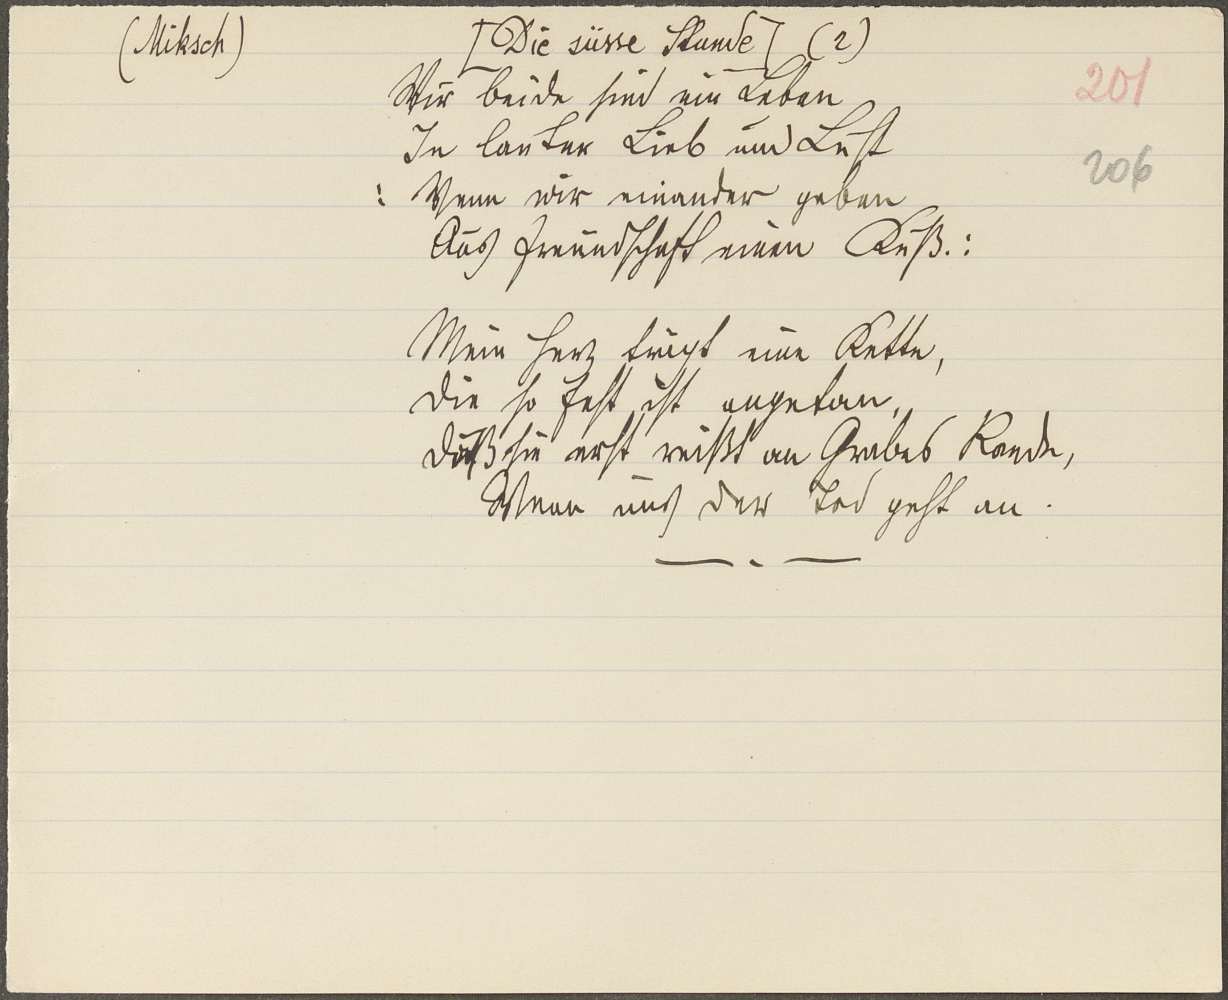 (Miksch) [Die süsse Stunde] (2)
201
Wir beide sind ein Leben
In lauter Lieb und Lust
206
: Wenn wir einander geben
Aus Freundschaft einen Kuß. :
Mein Herz trägt eine Kette,
Die so fest ist angetan,
Daß sie erst reißt an Grabes Rande,
Wenn uns der Tod geht an.